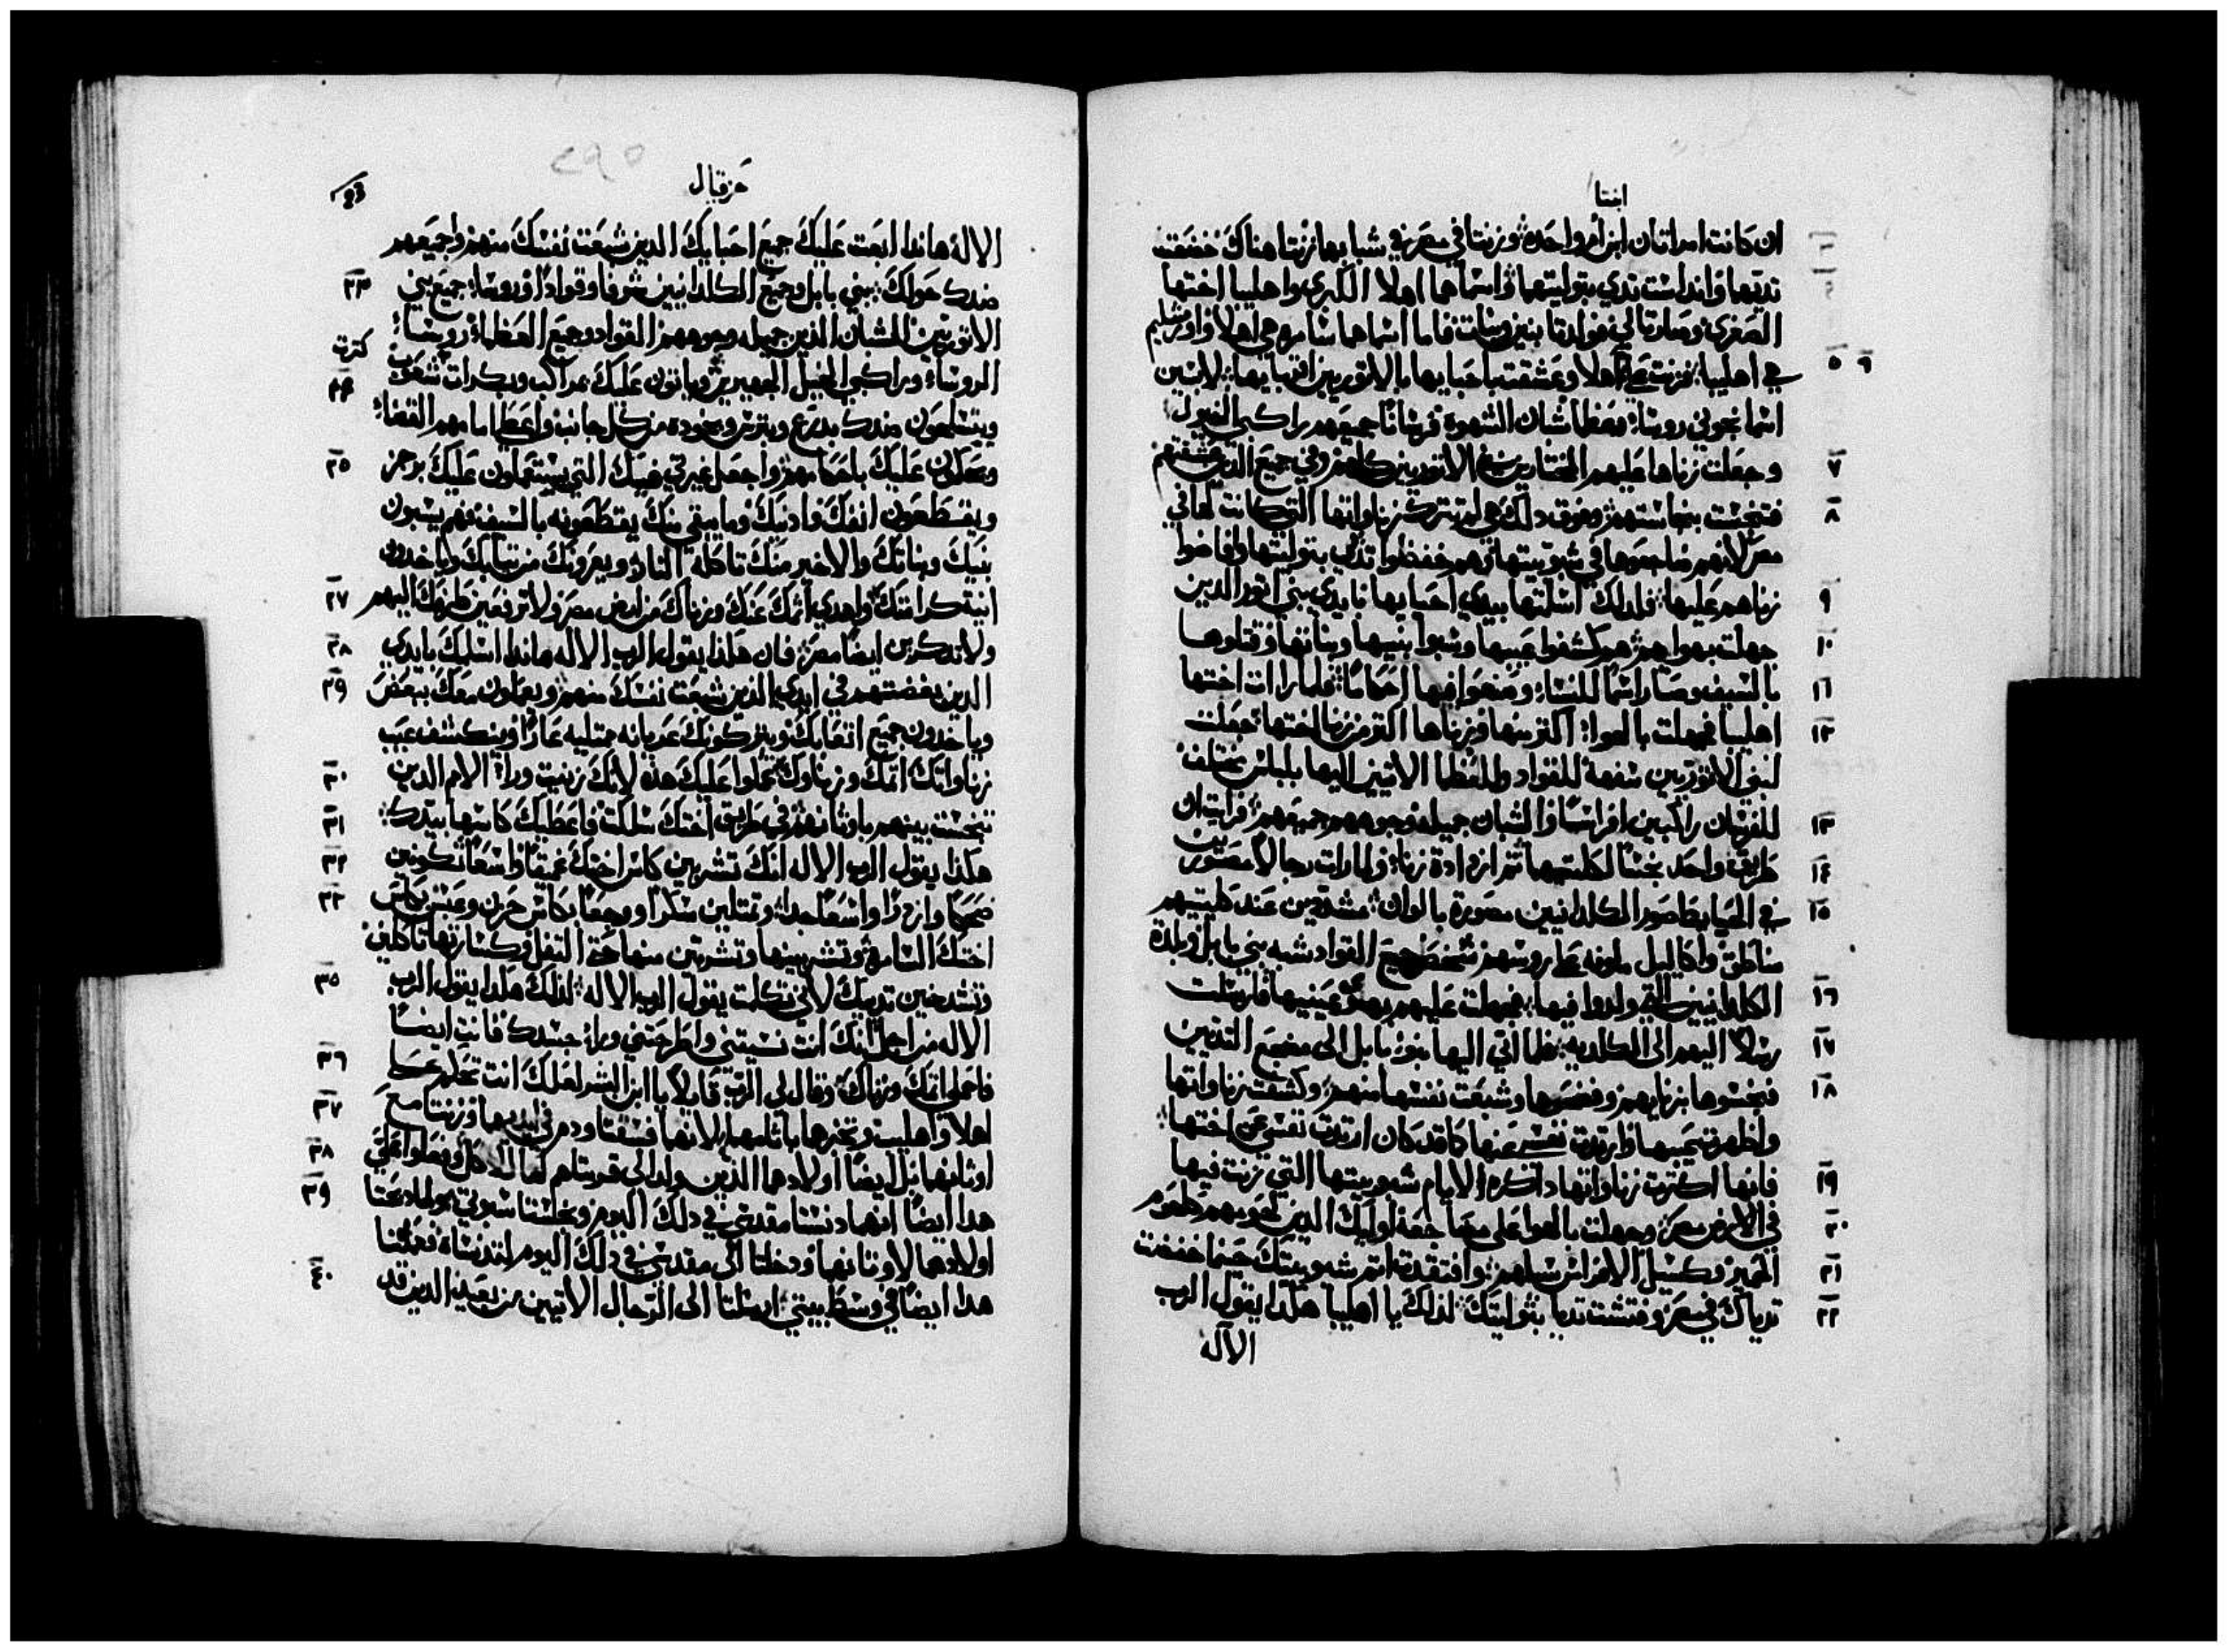 ابنتا
ان كانت امراتان ابنتا ام واحده وزنتا في مصر في شبابهما زنتا هناك خضعت
ثديهما واندلست ثدي بتوليتهما واسماهما اهلا الكبرى واهليبا اختها
الصغرى وصارتا لي فولدتا بنين وبنات فاما اسماهما سامره هي اهلا واورشليم
٥ ٩
هي اهليبا فزنت اهلا وعشقت باحبايها بالاتوريين اقربايها لابسين
اسمانجوني روسا وعظما شبان الشهوة فرسانا جميعهم راكبي الخيول
٧
وجعلت زناها عليهم المختارين بني الاتوريين كلهم وفي جميع الذين عشقتهم
٨
فتنجست بنجاستهم وفوق دلك هي لم تترك زناواتها التي كانت لها في
مصر لانهم ضاجعوها في شبوبيتها وهم خضعوا ثدي بتوليتها وافاضوا
٩
زناهم عليها فلدلك اسلمتها بيدي احبايها بايدي بني اتور الدين
١٠
جهلت بهواهم هم كشفوا عيبها وسبوا بنيها وبناتها وقتلوها
١١
بالسيف وصارا اسما للنساء وصنعوا فيها احكاما فلما رات اختها
١٢
اهليبا فجهلت بالهوا اكتر منها وزناها اكتر من زنا اختها جعلت
لبني الاتوريين شفعة للقواد والعظما الاتيين اليها بلباس مختلف
١٣
للفرسان راكبين افراسا والشبان جميله وجوههم جميعهم فرايت ان
١٤
طريق واحد نجسا لكلتيهما تم ازدادة زناء ولما رات رجالا مصورين
١٥
في الحيايط صور الكلدانيين مصورة بالوان مشدودين عند كليتيهم
مناطق واكاليل ملونه على روسهم شخص جميع القواد شبه بني بابل وبلدة
١٦
الكلدانيين التي ولدوا فيها فجهلت عليهم بهوى عينيها فارسلت
١٧
رسلا اليهم الى الكلديه فلما اتي اليها بنو بابل الى مضجع التديين
١٨
فنجسوها بزنايهم وفضحوها وشبعت نفسها منهم وكشفت زناواتها
واظهرت عيبها وارتدت نفسي عنها كما قد كان ارتدت نفسي عن اختها
١٩
فانها اكترت زناواتها داكره لايام شبوبيتها التي زنت فيها
٢٠
في الارض مصر وجهلت بالهوا على مضاجعة اوليك الدين لحومهم كلحوم
٢١
الحمير وكسيل الافراس سيلهم وافتقدت اتم شبوبيتك حينما خضعت
٢٢
ثدياك في مصر وفتشت ثديا بتوليتك لذلك يا اهليبا هكذا يقول الرب
الاله
٢٩٥
حزقيال
الاله هاندا ابعت عليك جميع احبايك الدين شبعت نفسك منهم واجمعهم
٢٣
ضدك حولك بني بابل وجميع الكلدانيين شرفا وقوادا وروسا جميع بني
الاتوريين الشبان الدين جميله وجوههم القواد وجميع العظماء روساء
٢٤
الروساء وراكبي الخيل الجهيرين وياتون عليك بمراكب وبكرات كترت شعوب
ويتسلحون ضدك بدرع وبترس وخوده من كل جانب واعطي امامهم القضاء
٢٥
ويحكمون عليك باحكامهم واجعل غيرتي فيك التي يستعملون عليك برجز
ويقطعون انفك وادنيك وما يبقى منك يقطعونه بالسيف هم يسبون
بنيك وبناتك والاخير منك تاكله النار ويعرونك من تيابك وياخدون
٢٧
انية كرامتك واهدي اتمك عنك وزناك من ارض مصر ولا ترفعين طرفك اليهم
٢٨
ولا تدكرين ايضا مصر فان هكذا يقول الرب الاله هاندا اسلمك بايدي
٢٩
الدين بغضتهم في ايدي الدين شبعت نفسك منهم ويعملون معك ببغض
وياخدون جميع اتعابك ويتركونك عريانه ممتليه عارا وينكشف عيب
٣٠
زناواتك اتمك وزناوك عملوا عليك هذه لانك زنيت وراء الامم الدين
٣١
تنجست بينهم باوثانهم في طريق اختك سلكت واعطيك كاسها بيدك
٣٢
هكذا يقول الرب الاله انك تشربين كاس اختك عميقا واسعا تكونين
٣٣
ضحكا وازدراء واسعا جدا وتمتلين سكرا ووجعا بكاس حزن وعبس بكاس
اختك السامره وتشربينها وتشربين منها حتى التفل وكسارتها تاكلين
٣٥
وتشدخين ثدييك لاني تكلمت يقول الرب الاله لذلك هكذا يقول الرب
الاله من اجل انك انت نسيتني واطرحتني وراء جسدك فانت ايضا
٣٦
فاحملي اتمك وزناك وقال لي الرب قايلا يا ابن البشر لعلك انت تحكم على
٣٧
اهلا واهليب وتخبرها باتامهما لانهما فسقتا ودم في ايديهما وزنتا مع
٣٨
اوثانهما بل ايضا اولادهما الدين ولدا لي قربتاهم لها للاكل وفعلوا علي
٣٩
هدا ايضا انهما دنستا مقدسي في دلك اليوم ونجستا سبوتي ولما دبحتا
اولادهما لاوثانهما ودخلتا الى مقدسي في دلك اليوم لتدنساه فعلتا
٤٠
هدا ايضا في وسط بيتي ارسلتا الى الرجال الاتيين من بعيد الدين قد